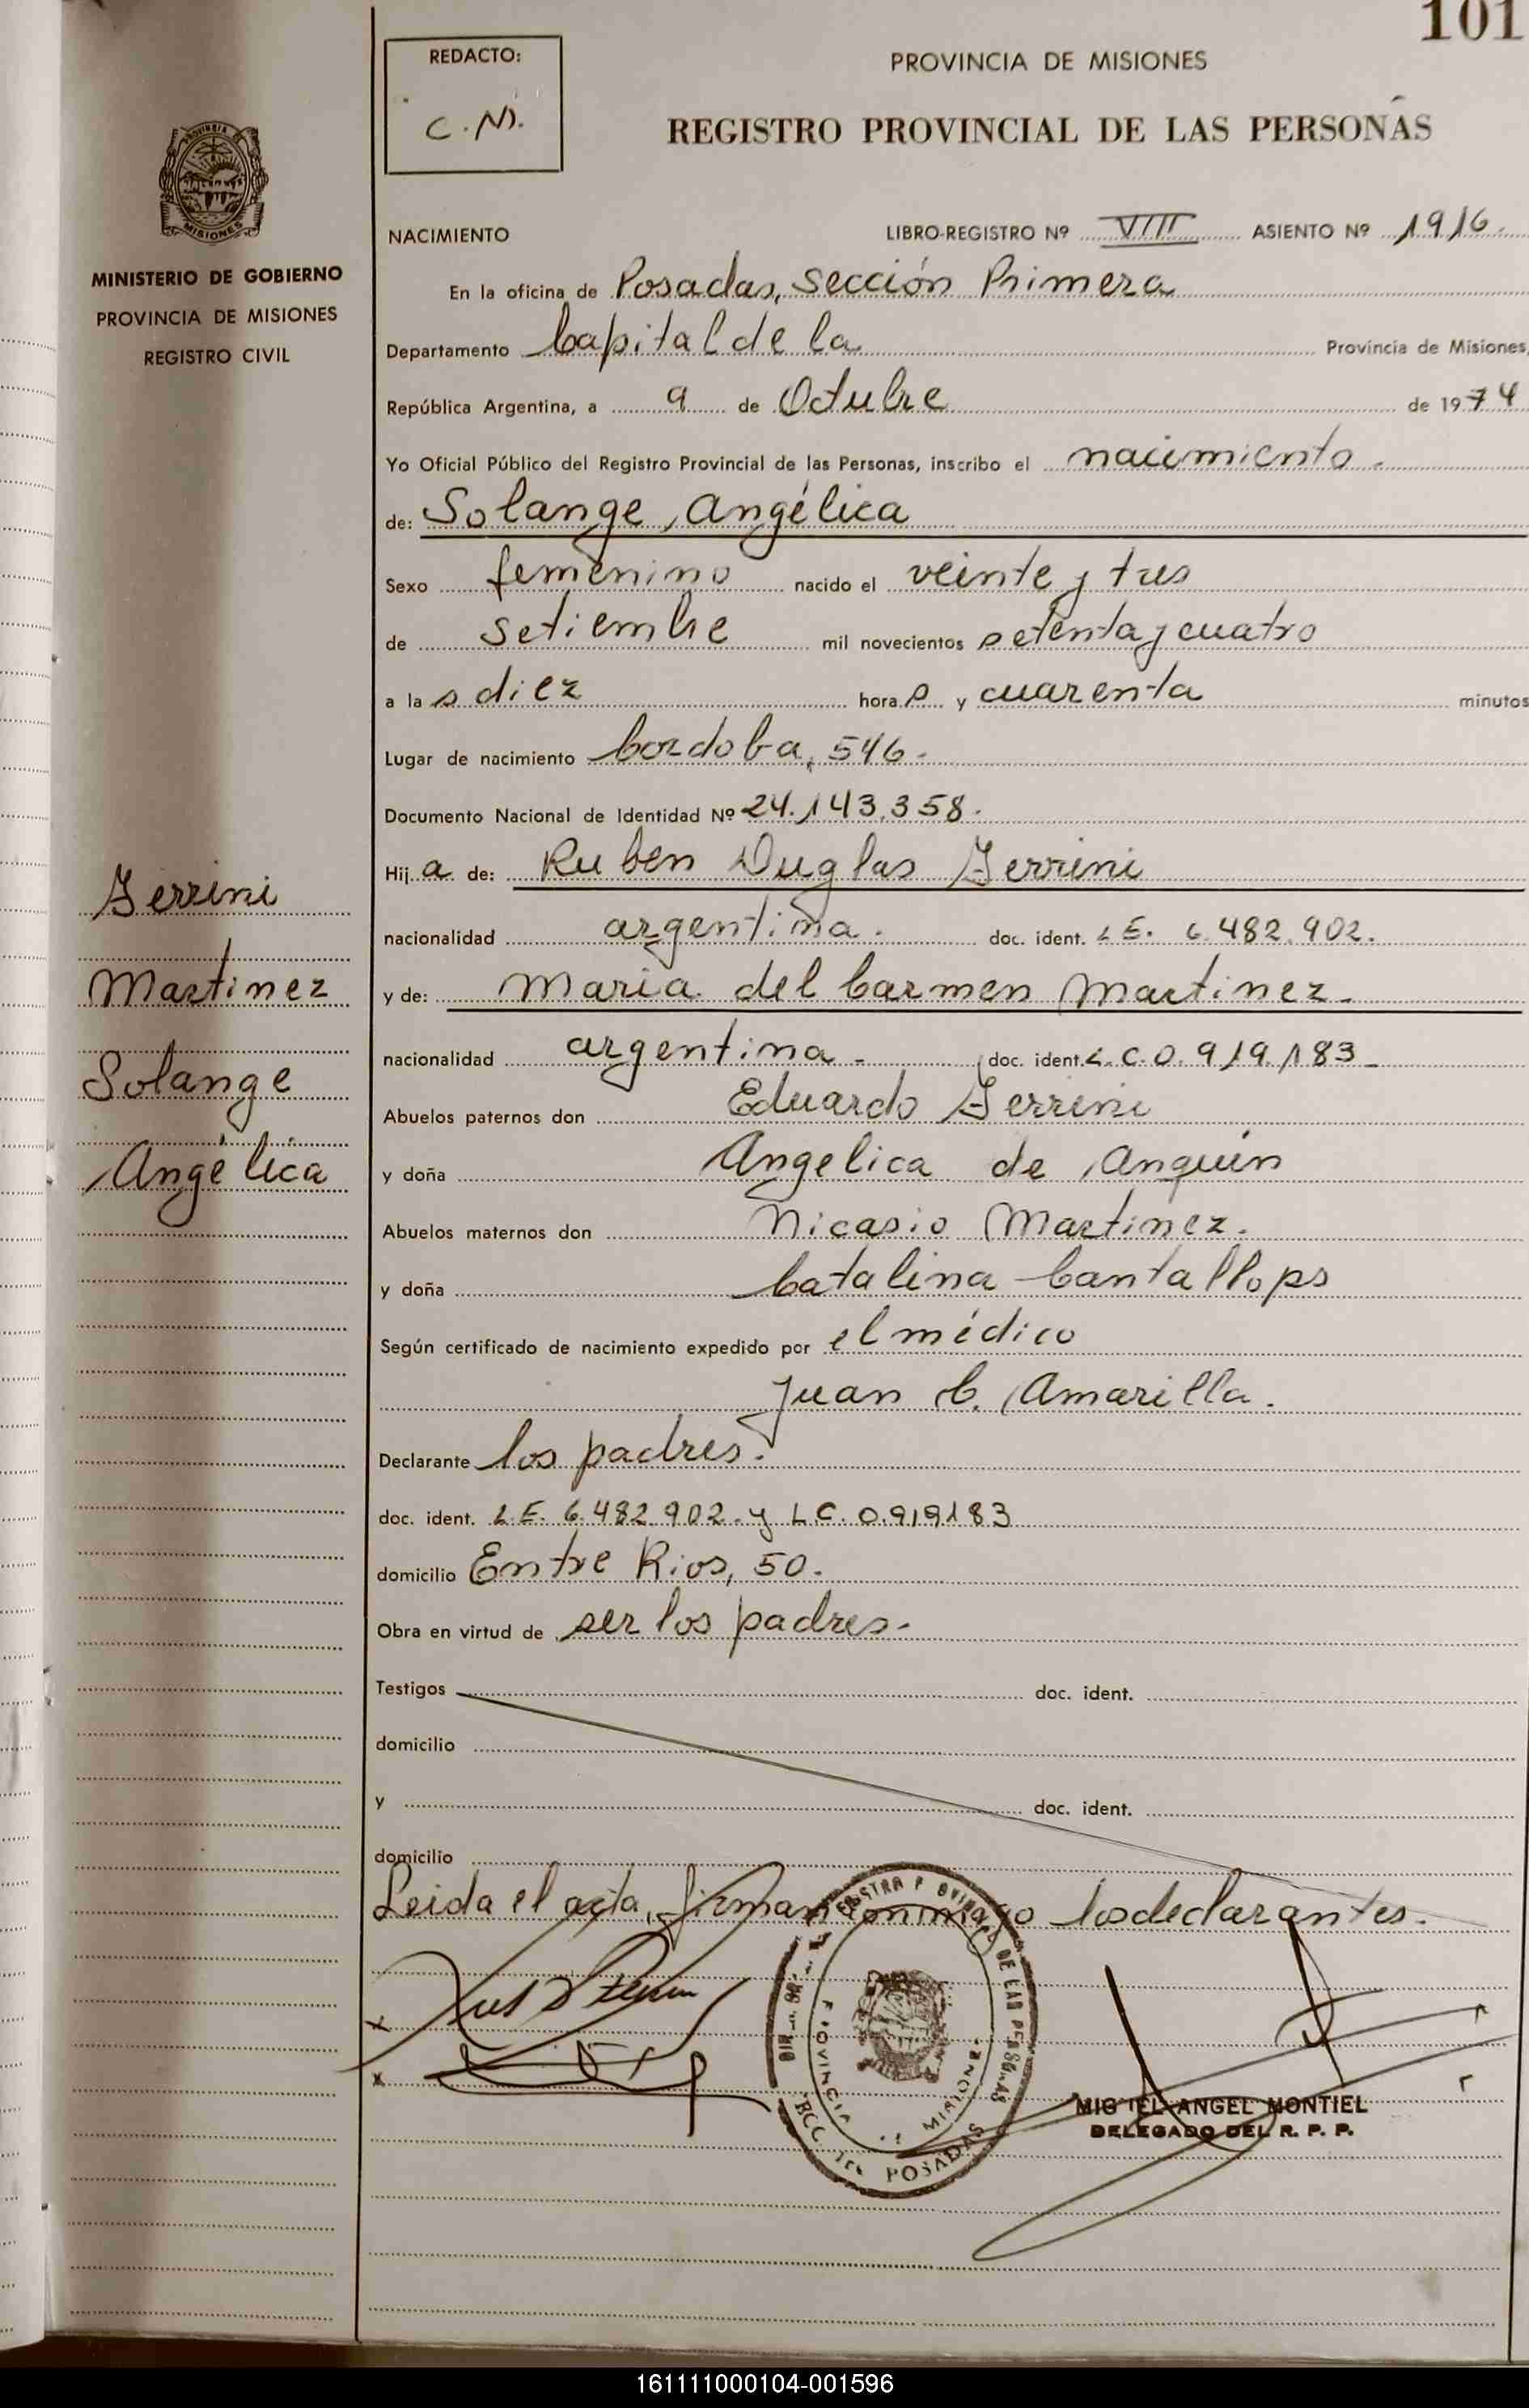 101
REDACTO:
C. M.
PROVINCIA DE MISIONES
REGISTRO PROVINCIAL DE LAS PERSONAS
MISIONES
MINISTERIO DE GOBIERNO
PROVINCIA DE MISIONES
REGISTRO CIVIL
NACIMIENTO LIBRO-REGISTRO Nº VIII ASIENTO Nº 1916.
En la oficina de Posadas, Sección Primera
Departamento Capital de la Provincia de Misiones,
República Argentina, a 9 de Octubre de 1974
Yo Oficial Público del Registro Provincial de las Personas, inscribo el nacimiento.
de: Solange, Angélica
Sexo femenino nacido el veinte y tres
de setiembre mil novecientos setenta y cuatro
a las diez horas y cuarenta minutos
Lugar de nacimiento Cordoba, 546.
Documento Nacional de Identidad Nº 24.143.358.
Hija de: Ruben Duglas Ferrini
nacionalidad argentina. doc. ident. L E. 6.482.902.
y de: Maria del Carmen Martinez.
nacionalidad argentina - doc. ident. L. C. 0.919.183 -
Abuelos paternos don Eduardo Ferrini
y doña Angelica de Anquin
Abuelos maternos don Nicasio Martinez.
y doña Catalina Cantallops
Según certificado de nacimiento expedido por el médico
Juan C. Amarilla.
Declarante los padres.
doc. ident. L.E. 6.482.902. y L.C. 0.919183
domicilio Entre Rios, 50.
Obra en virtud de ser los padres.
Testigos doc. ident.
domicilio
y doc. ident.
domicilio
Leida el acta, firman conmigo los declarantes.
Ferrini
Martinez
Solange
Angélica
x
x
PROVINCIA MISIONES
DE LAS PERSONAS
POSADAS
MIGUEL ANGEL MONTIEL
DELEGADO DEL R. P. P.
161111000104-001596